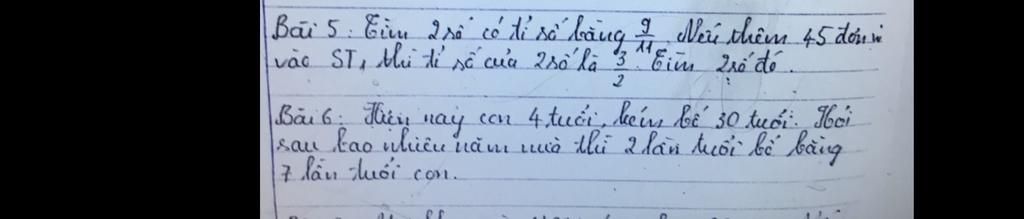 Bài 5: Tìm 2 số có tỉ số bằng 9/11. Nếu thêm 45 đơn vị
vào ST1 thì tỉ số của 2 số là 3/2. Tìm 2 số đó.
Bài 6: Hiện nay con 4 tuổi, kém bố 30 tuổi. Hỏi
sau bao nhiêu năm nữa thì 2 lần tuổi bố bằng
7 lần tuổi con.